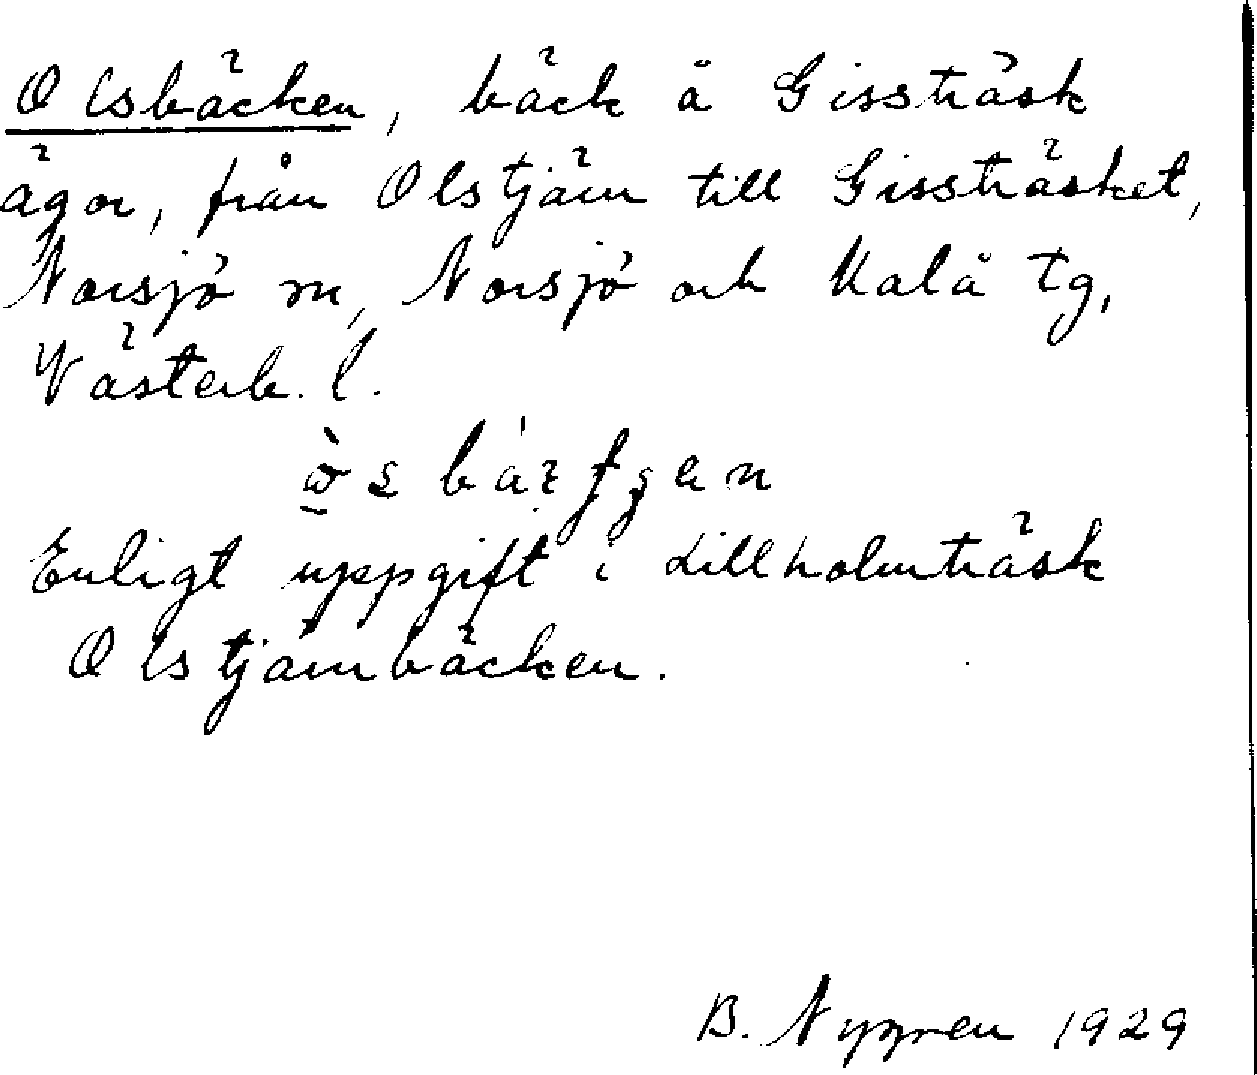 Olsbäcken, bäck å Gissträsk
ägor, från Olstjärn till Gissträsket,
Norsjö sn, Norsjö och Malå tg,
Västerb. l.
Enligt uppgift i Lillholmträsk
Olstjärnbäcken.
B. Nygren 1929